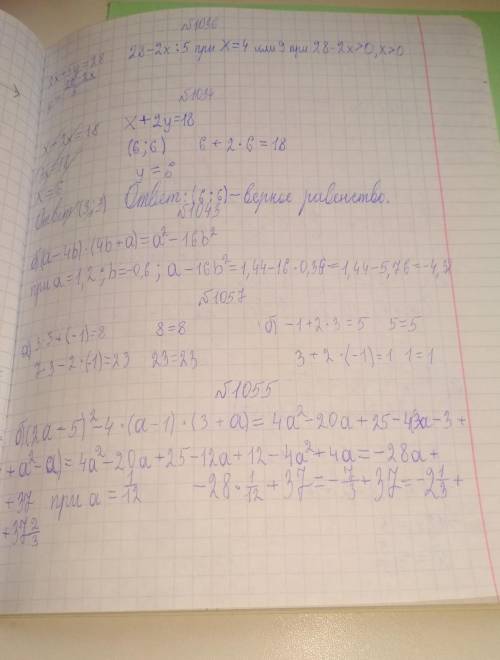 №1036
2x+5y=28
28-2x:5 при x=4 или 9 при 28-2x>0, x>0
№1034
x+2x=18
x+2y=18
(6;6) 6+2·6=18
x=6
y=6
Ответ: (6;6)-верное равенство.
№1045
б(a-4b)·(4b+a)=a²-16b²
при a=1,2; b=-0,6; a-16b²=1,44-16·0,36=1,44-5,76=-4,32
№1057
а) 3·3+(-1)=8 8=8 б) -1+2·3=5 5=5
7·3-2·(-1)=23 23=23 3+2·(-1)=1 1=1
№1055
б(2a-5)²-4·(a-1)·(3+a)=4a²-20a+25-4(3a-3+
+a²-a)=4a²-20a+25-12a+12-4a²+4a=-28a+
+37 при a=1/12 -28·1/12+37=-7/3+37=-2 1/3+
+37 2/3